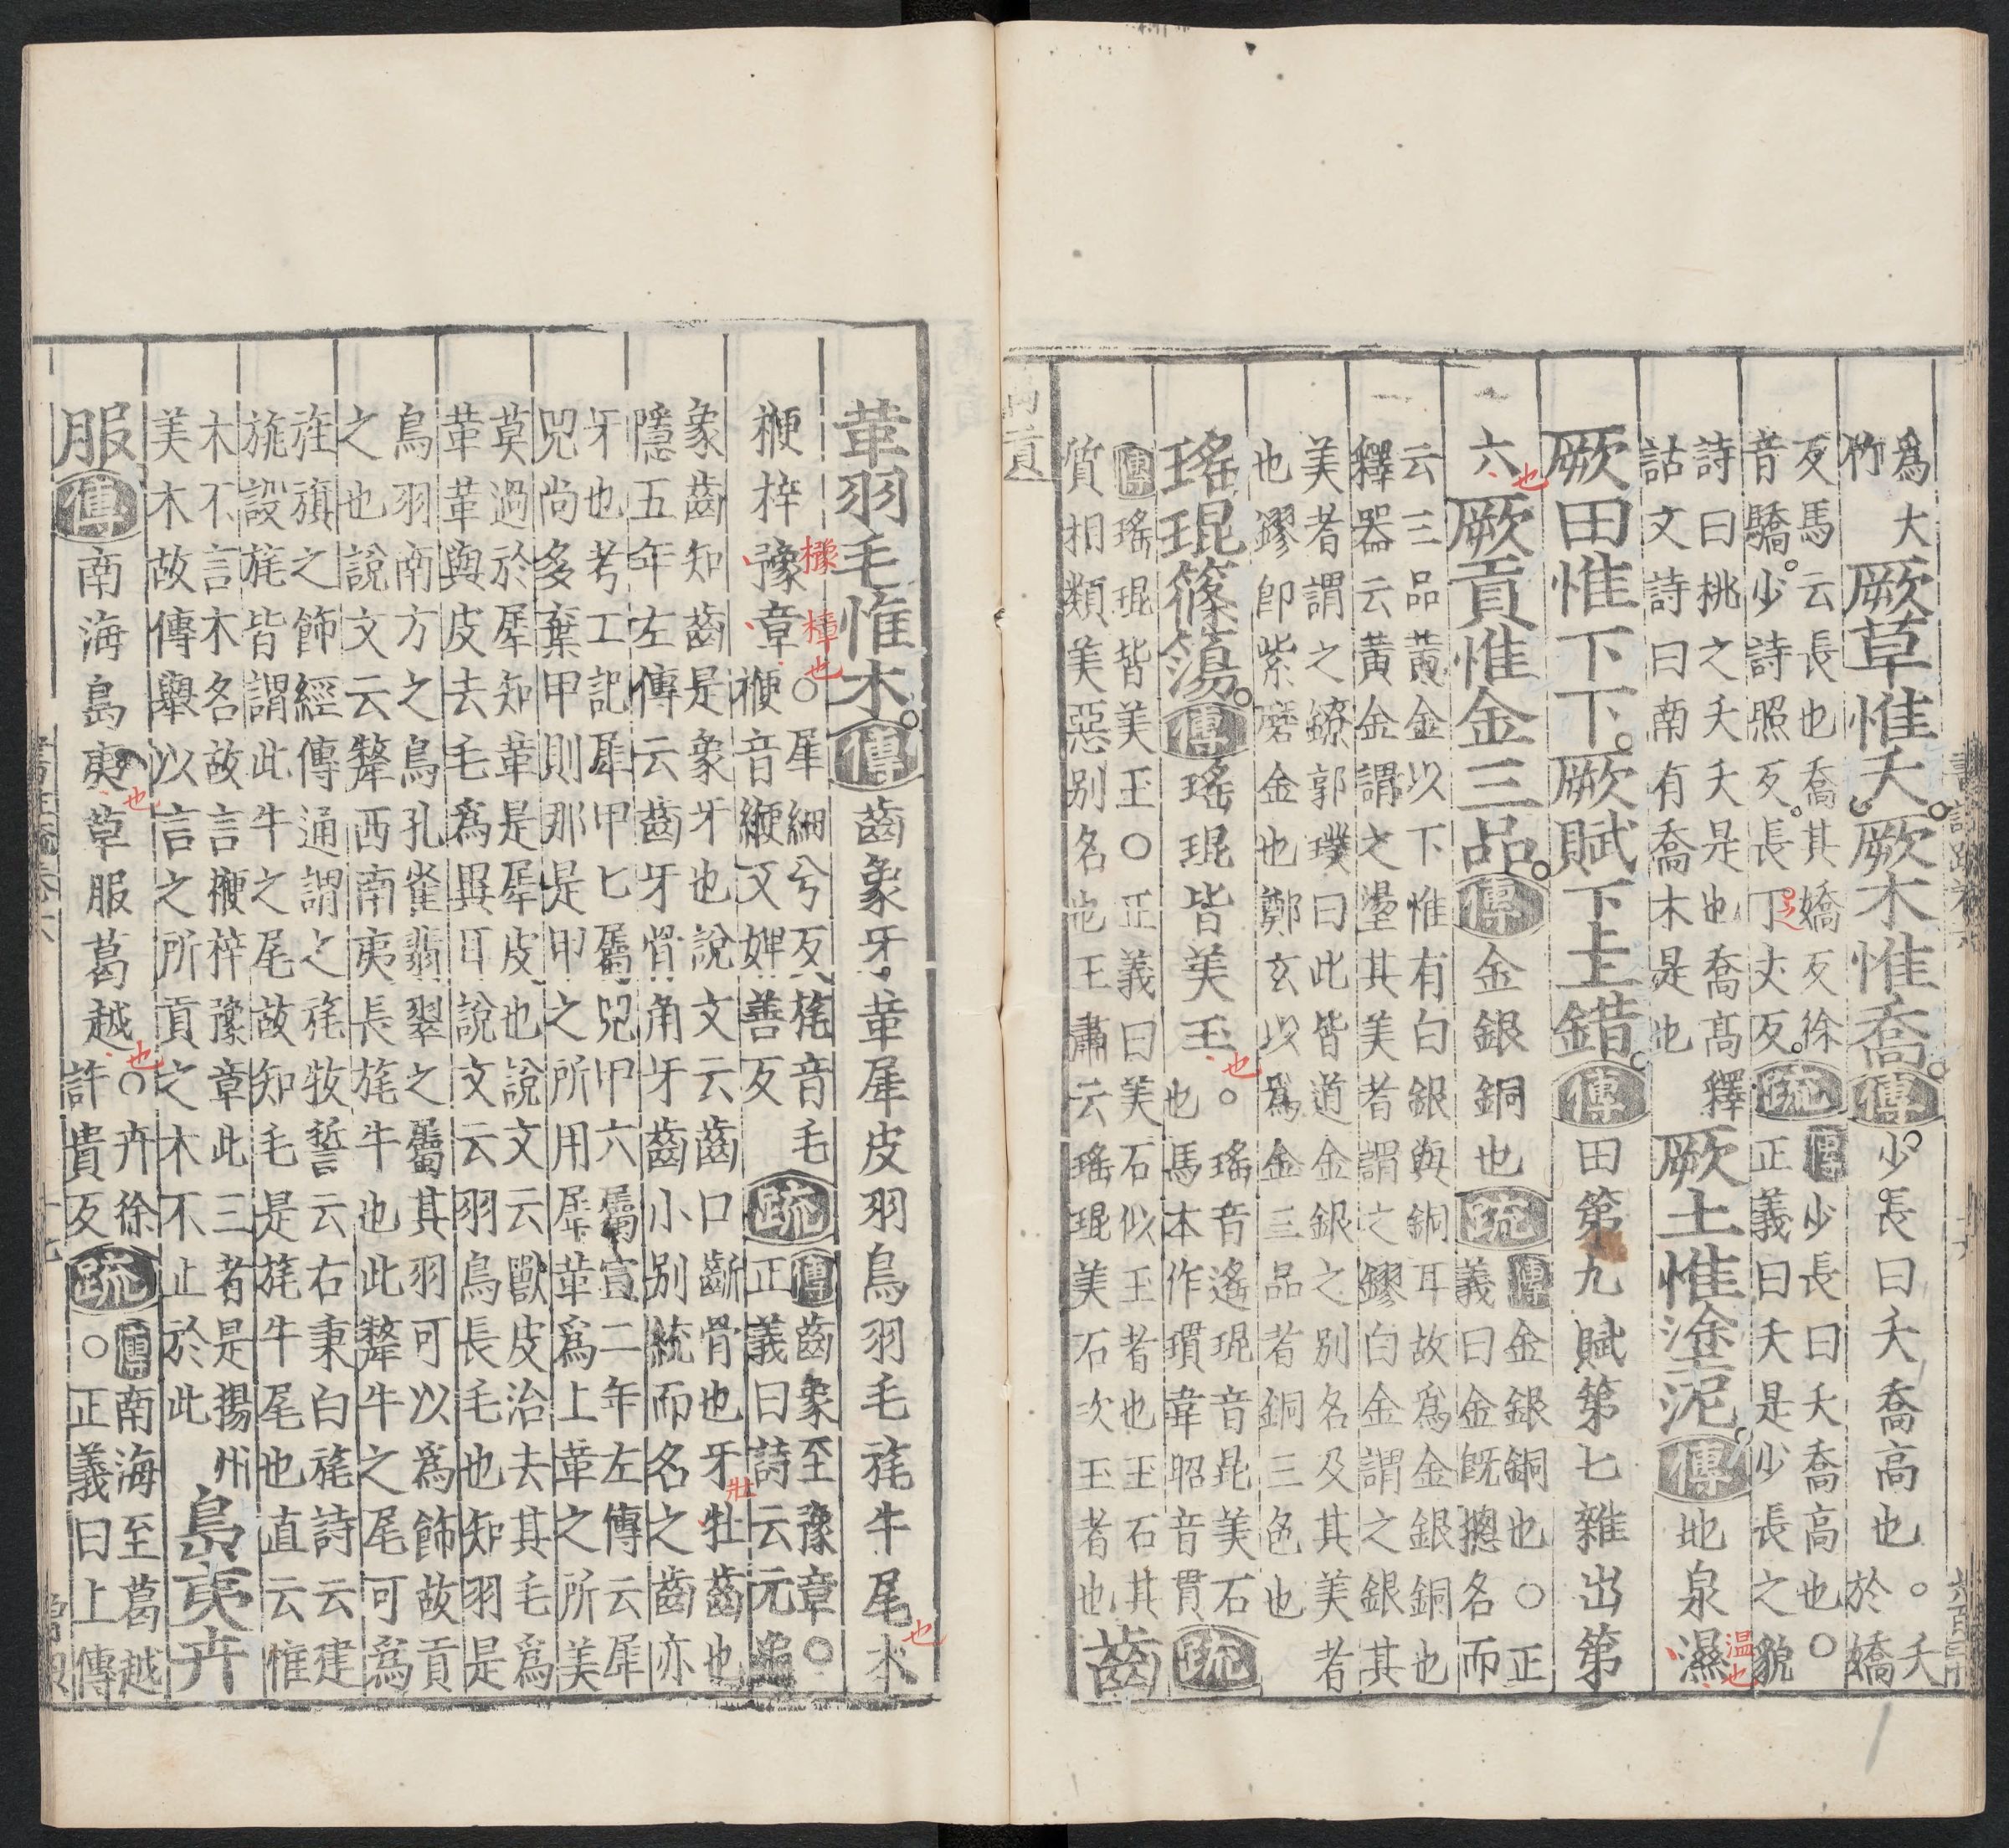 爲大
竹
厥草惟夭厥木惟喬傳少長曰夭喬高也○夭
於嬌
反馬云長也喬其嬌反徐
音驕少詩照反長丁丈反
疏
傳少長曰夭喬高也○
正義曰夭是少長之貌
詩曰桃之夭夭是也喬高釋
詁文詩曰南有喬木是也
厥土惟塗泥傳地泉濕
温也
厥田惟下下厥賦下上錯傳田第九賦第七雜出第
六厥貢惟金三品傳金銀銅也疏
也
傳金銀銅也○正
義曰金既摠名而
云三品黃金以下惟有白銀與銅耳故爲金銀銅也
釋器云黃金謂之璗其美者謂之鏐白金謂之銀其
美者謂之鐐郭璞曰此皆道金銀之別名及其美者
也鏐卽紫磨金也鄭玄以爲金三品者銅三色也
瑤琨篠簜傳瑤琨皆美玉○
也
瑤音遙琨音昆美石
也馬本作瑻韋昭音貫
疏
傳瑤琨皆美玉○正義曰美石似玉者也玉石其
質相類美惡別名也王肅云瑤琨美石次玉者也
齒
禹貢
革羽毛惟木傳齒象牙革犀皮羽鳥羽毛旄牛尾木
也
楩梓豫章○
橡樟也
犀細兮反旄音毛
楩音緶又婢善反
疏
傳齒象至豫章○
正義曰詩云元龜
象齒知齒是象牙也說文云齒口齗骨也牙牡齒也
壯
隱五年左傳云齒牙骨角牙齒小別統而名之齒亦
牙也考工記犀甲七屬兕甲六屬宣二年左傳云犀
兕尚多棄甲則那是甲之所用犀革爲上革之所美
莫過於犀知革是犀皮也說文云獸皮治去其毛爲
革革與皮去毛爲異耳說文云羽鳥長毛也知羽是
鳥羽南方之鳥孔雀翡翠之屬其羽可以爲飾故貢
之也說文云犛西南夷長旄牛也此犛牛之尾可爲
旌旗之飾經傳通謂之旄牧誓云右秉白旄詩云建
旐設旄皆謂此牛之尾故知毛是旄牛尾也直云惟
木不言木名故言楩梓豫章此三者是揚州
美木故傳舉以言之所貢之木不止於此
島夷卉
服傳南海島夷草服葛越○
也
也
卉徐
許貴反
疏
傳南海至葛越
○正義曰上傳